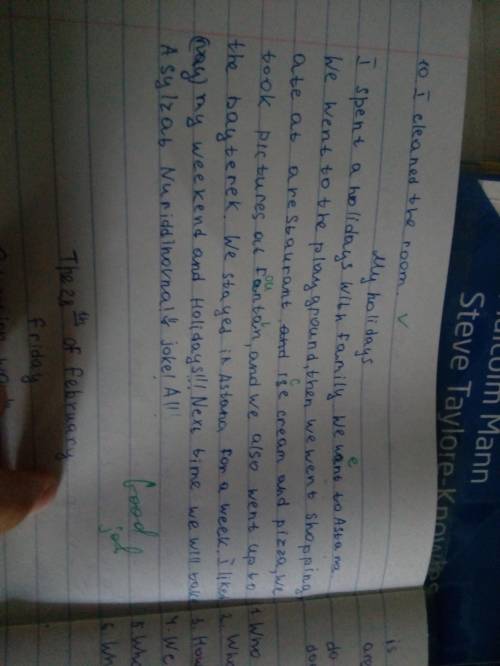 10 I cleaned the room. V
My holidays
I spent a holidays with family we want to Astana
e
We went to the playground, then we went shopping,
ate at a restaurant and ise cream and pizza, we
c
took pictures at fantan, and we also went up to
ou
the bayterek. We stayed in Astana for a week. I like
my weekend and Holidays!!! Next time we will take
Asylzat Nuriddinovna
joke! All
Good
job
The 28th of february
friday
Malcolm Mann
Steve Taylore-Knowles
is
do
1 Who
2 Who
3 How
4 We
5 Who
6 Wh